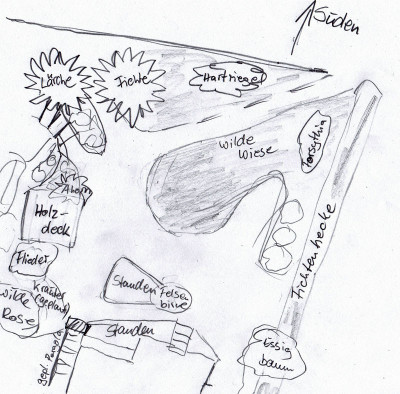 Süden
Lärche
Fichte
Hartriegel
wilde
Wiese
Forsythia
Ahorn
Holz-
deck
Fichtenhecke
Flieder
Stauden
Felsen
birne
Kräuter
(geplant)
wilde
Rose
Stauden
gepl. Pergola
Essig
baum